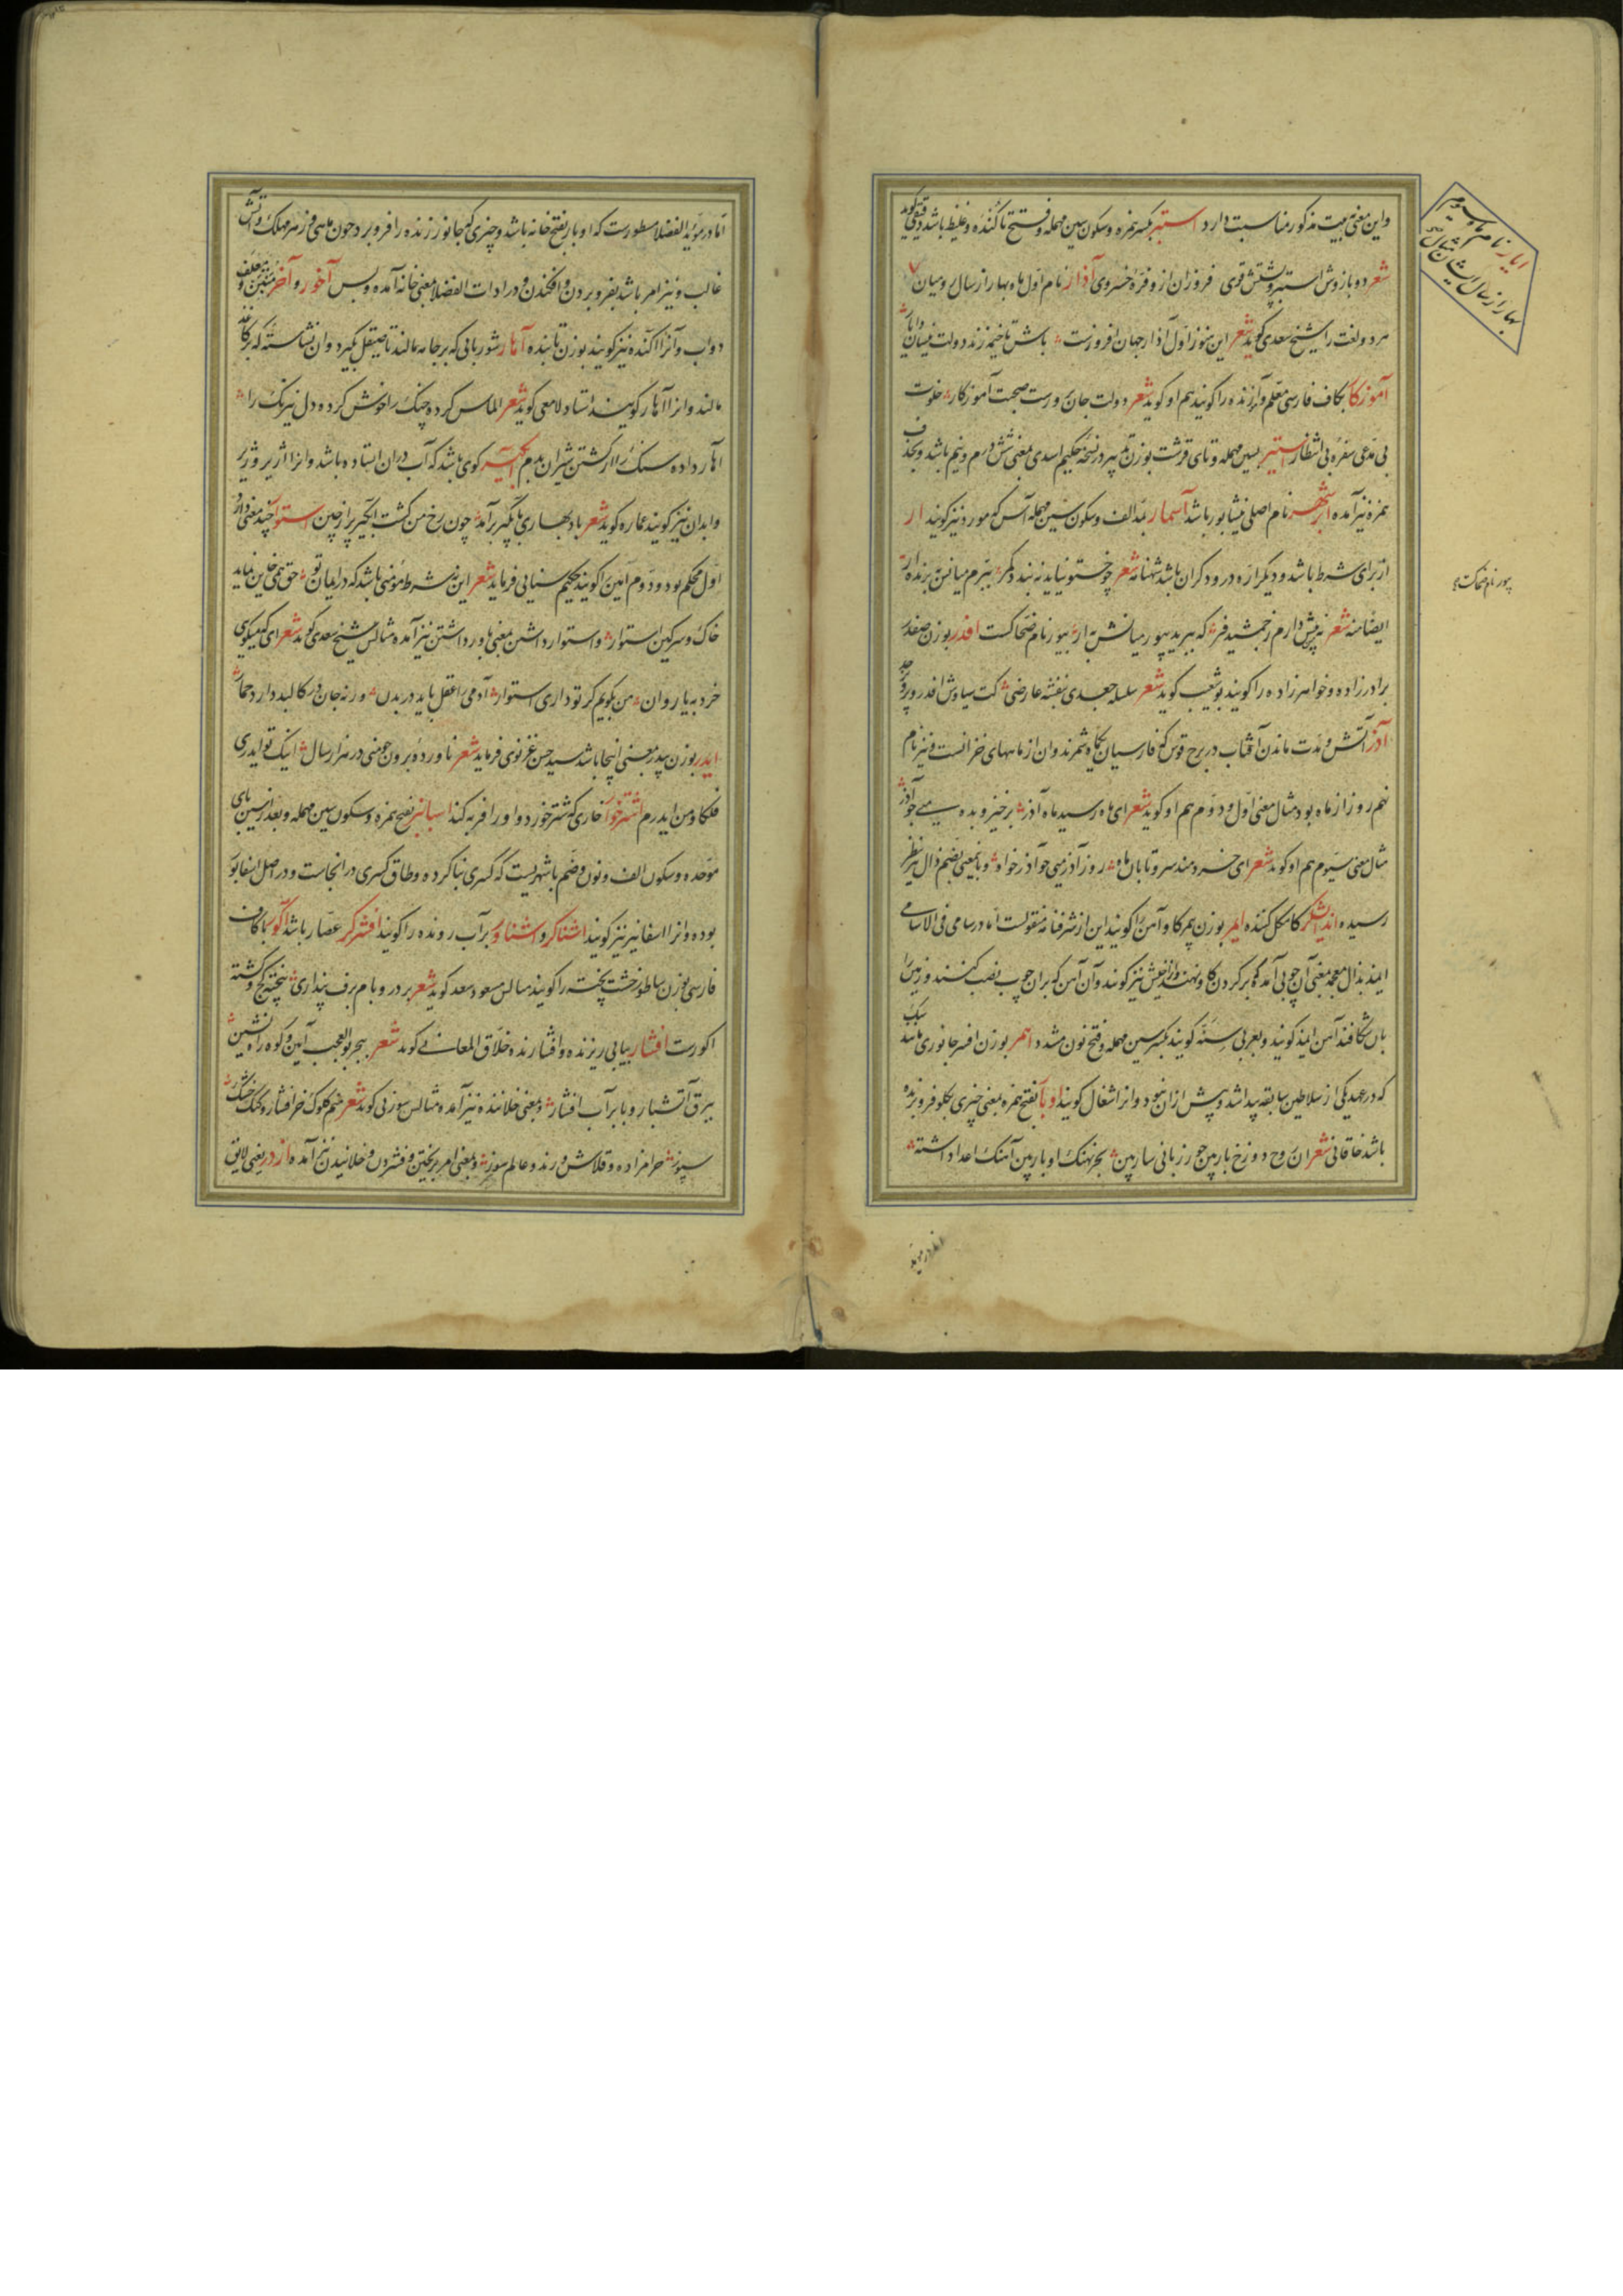 واین معنی به بیت مذکور مناسبت دارد استبر بکسر همزه و سکون سین مهمله و فتح تا کنده و غلیظ باشد دقیقی گوید
شعر دو بازوش استبر و پشتش قوی فروزان ازو فرّهٔ خسروی آذار نام اول ماه بهار از سال رومیان
هر دو لغت را شیخ سعدی گوید شعر این هنوز اول آذار جهان افروزست باش تا خیمه زند دولت نیسان و ایار
آموزکار بکاف فارسی معلم و آموزنده را گویند هم او گوید شعر دولت جان پرورست صحبت آموزکار خلوت
بی مدعی سفره بی انتظار استیر بسین مهمله و تای قرشت بوزن تدبیر در نسخه حکیم اسدی بمعنی شش درم و نیم باشد و بحذف
همزه نیز آمده ابرشهر نام اصلی نیشابور باشد آسمار بمد الف و سکون سین مهمله آس که مورد نیز گویند ار
از برای شرط باشد و دیگر ارّه درودگران باشد شهنامه شعر چو خستو نیاید نه بندد کمر ببرم میانش ببرنده ار
ایضا منه شعر نه پیش دارم ز جمشید فر که ببرید بیور میانش به ار بیور نام ضحاکست افدر بوزن صفدر
برادرزاده و خواهرزاده را گویند بو شعیب گوید شعر سلسله جعدی بنفشه عارضی کت سیاوش افدر و پرویز جد
آذر آتش و مدت ماندن آفتاب در برج قوس که فارسیان یکماه شمرند و ان از ماههای خزانست و نیز نام
نهم روز از ماه بود مثال معنی اول و دوم هم او گوید شعر ای ماه رسید ماه آذر برخیز و بده می چو آذر
مثال معنی سیوم هم او گوید شعر ای خردمند سرو تابان ماه روز آذر می چو آذر خواه و بانمعنی بضم ذال نیز بنظر
رسیده اندیشکر کاهکل کننده ایمر بوزن پیکر کاو آهن را گویند این از شرفنامه منقولست اما در سامی فی الاسامی
ایمذ بذال معجمه بمعنی آن چوبی آمده که بر گردن کاو نهند و انرا خیش نیز گویند و آن آهن که بران چوب نصب کنند و زمین را
بان شکافند آهن ایمذ گویند و بعربی سنّه گویند بکسر سین مهمله و فتح نون مشدد اهمر بوزن افسر جانوری مانند سگ
که در عهد یکی از سلاطین سابقه پیدا شد و پیش ازان نبود و انرا شغال گویند اوبار بفتح همزه بمعنی چیزی بگلو فروبرنده
باشد خاقانی شعر ان روح دوزخ بار بین جوزر زبانی سار بین بحر نهنگ اوبار بین آهنگ اعدا داشته
ایار نام ماه سیوم
بهار از سال ایشان مثال
بیور نام ضحاکست
اما در موید
اما در موید الفضلا مسطورست که اوبار بفتح خانه باشد و چیزی که جانور زنده را فروبرد جون ماهی و زهر مهلک و آتش
غالب و نیز امر باشد بفروبردن و افکندن و در ادات الفضلا بمعنی خانه آمده و بس آخور و آخر متبن و معلف
دواب و آنرا آکنده نیز گویند بوزن تابنده آهار شوربائی که برجامه مالند تا صیقل گیرد و ان نشاسته که بر کاغذ
مالند و انرا آهار گویند استاد لامعی گوید شعر الماس کرده چنگ را خوش کرده دل نیرنگ را
آهار داده سنگ را از کشتن شیران بدم آبگیر کوی باشد که آب دران ایستاده باشد و انرا آژیر و ژیر
و ابدان نیز گویند عماره گوید شعر باد بهاری بآبگیر برآمد چون رخ من گشت آبگیر پر از چین استوار چند معنی دارد
اول محکم بود و دوم امین را گویند حکیم سنایی فرماید شعر این نه شرط مؤمنی باشد که در ایمان تو حق همی خاین نماید
خاک و سرگین استوار و استوار داشتن بمعنی باور داشتن نیز آمده مثالش شیخ سعدی گوید شعر ای که میگوی
خرد به یا روان من بگویم گر تو داری استوار آدمی را عقل باید در بدن ورنه جان در کالبد دارد حمار
ایدر بوزن بیدر بمعنی اینجا باشد سید حسن غزنوی فرماید شعر ناورده برون چو منی در هزار سال اینک تو ایدری
فلکا و من ایدرم اشترخوار خاری که شتر خورد و اورا فربه کند اسبانبر بفتح همزه و سکون سین مهمله و بعد از سین بای
موحده و سکون الف و نون و ضم با شهریست که کسری بنا کرده و طاق کسری در انجاست و در اصل اسفابور
بوده و انرا اسفانبر نیز گویند اشناگر و اشناور بر آب رونده را گویند افشرگر عصار باشد آگور بکاف
فارسی بوزن ساطور خشت پخته را گویند مثالش مسعود سعد گوید شعر بر در و بام برف پنداری پنبه گچ گشته
اکورست افشار بیایی ریزنده و افشارنده خلاق المعانی گوید شعر ببحر بوالعجب آیین و کوه راه نشین
ببرق آتشبار و بابر آب افشار و بمعنی خلاننده نیز آمده مثالش سوزنی گوید شعر منم کلوک خر افشار و گنگ خشک
سپوز حرامزاده و قلاش و رند و عالم سوز و بمعنی امر بریختن و فشردن و خلانیدن نیز آمده ازدر یعنی لایق